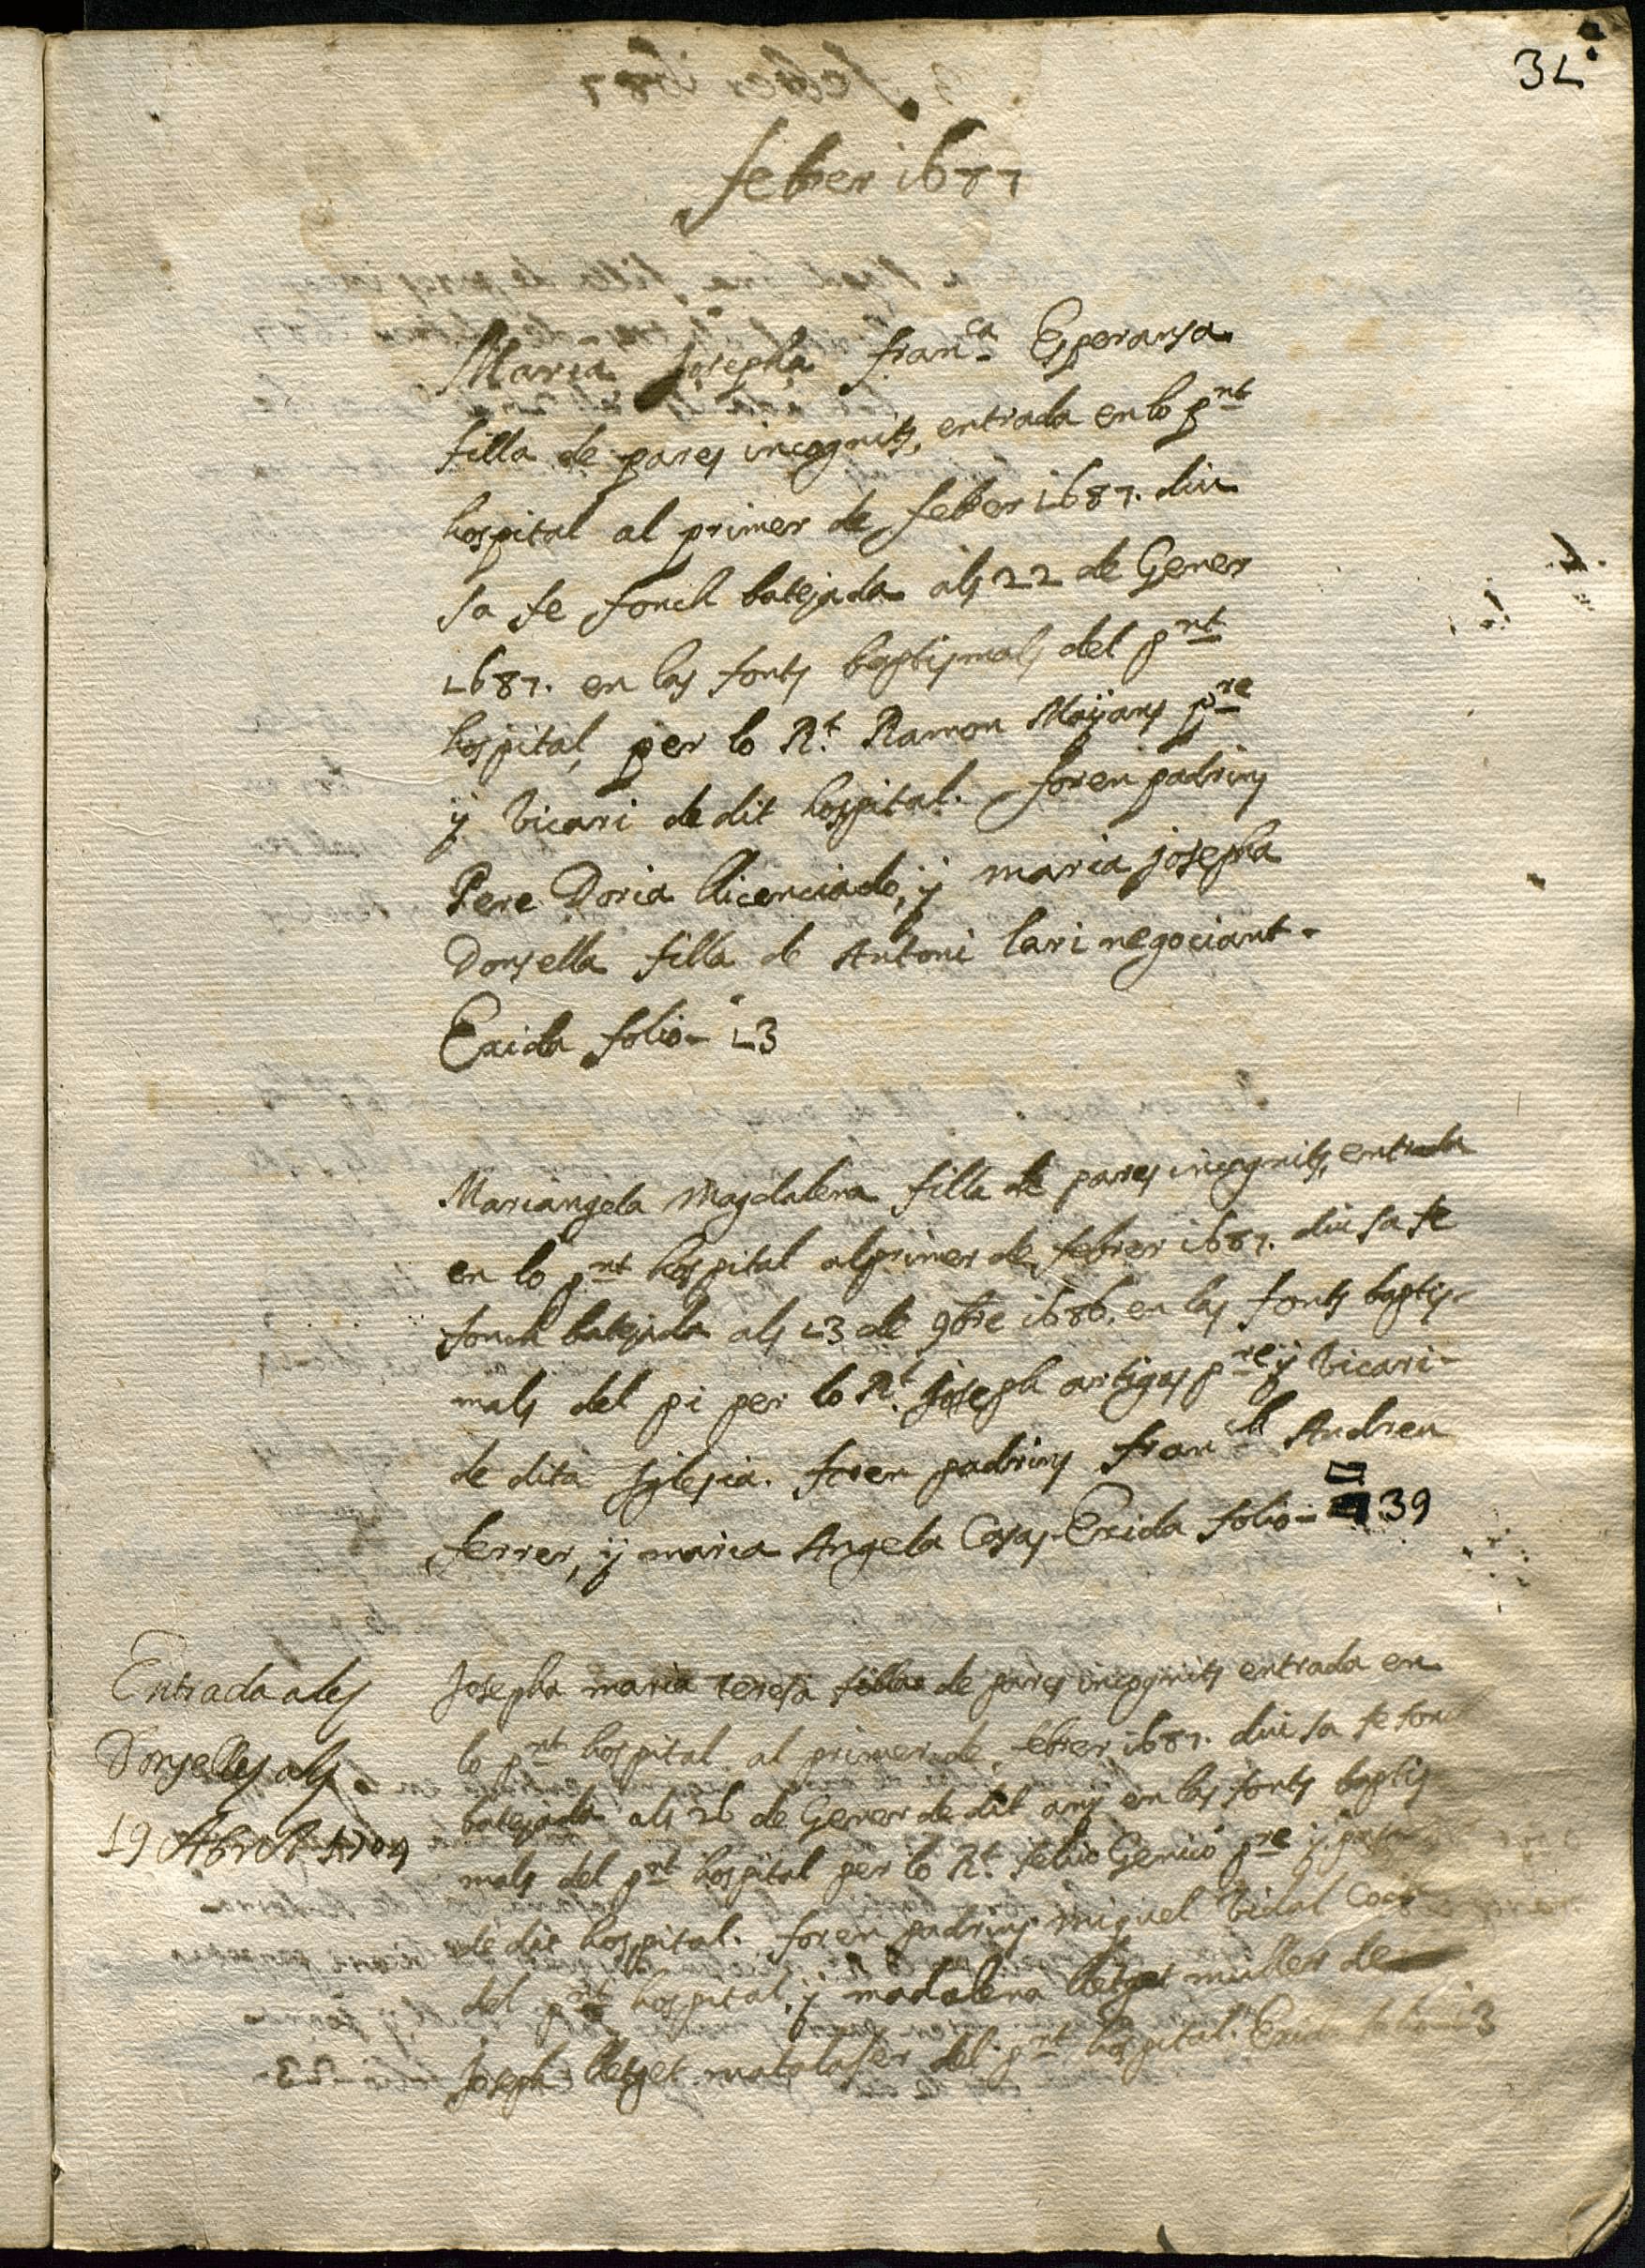 31
febrer 1687
Maria Josepha fran.ca Esperansa
filla de pares incognits, entrada en lo pnt
hospital al primer de febrer 1687. diu
sa fe fonch batejada als 22 de Gener
1687. en las fonts baptismals del pnt
hospital, per lo Rt. Ramon Maÿans pre
ÿ Vicari de dit hospital. foren padrins
Pere Doria llicenciado, ÿ maria josepha
Donsella filla de Antoni lari negociant.
Exida folio - 13
Mariangela Magdalena filla de pares incognits, entrada
en lo pnt hospital al primer de febrer 1687. diu sa fe
fonch batejada als 13 de 9bre 1686. en las fonts baptis-
mals del pi per lo Rt. Joseph artigas pre ÿ Vicari
de dita Iglesia. foren padrins fran.ch Andreu
ferrer, ÿ maria Angela Casas. Exida folio - 39
Entrada a les
Donselles als
19 Abril 1704
Josepha maria teresa filla de pares incognits entrada en
lo pnt hospital al primer de febrer 1687. diu sa fe fonch
batejada als 26 de Gener de dit anÿ en las fonts baptis
mals del pnt hospital per lo Rt. feliu Genuio pre ÿ
de dit hospital. foren padrins miquel Vidal Coch
del pnt hospital, ÿ madalena lletget muller de
Joseph lletget matalaser del pnt hospital. Exida folio 13